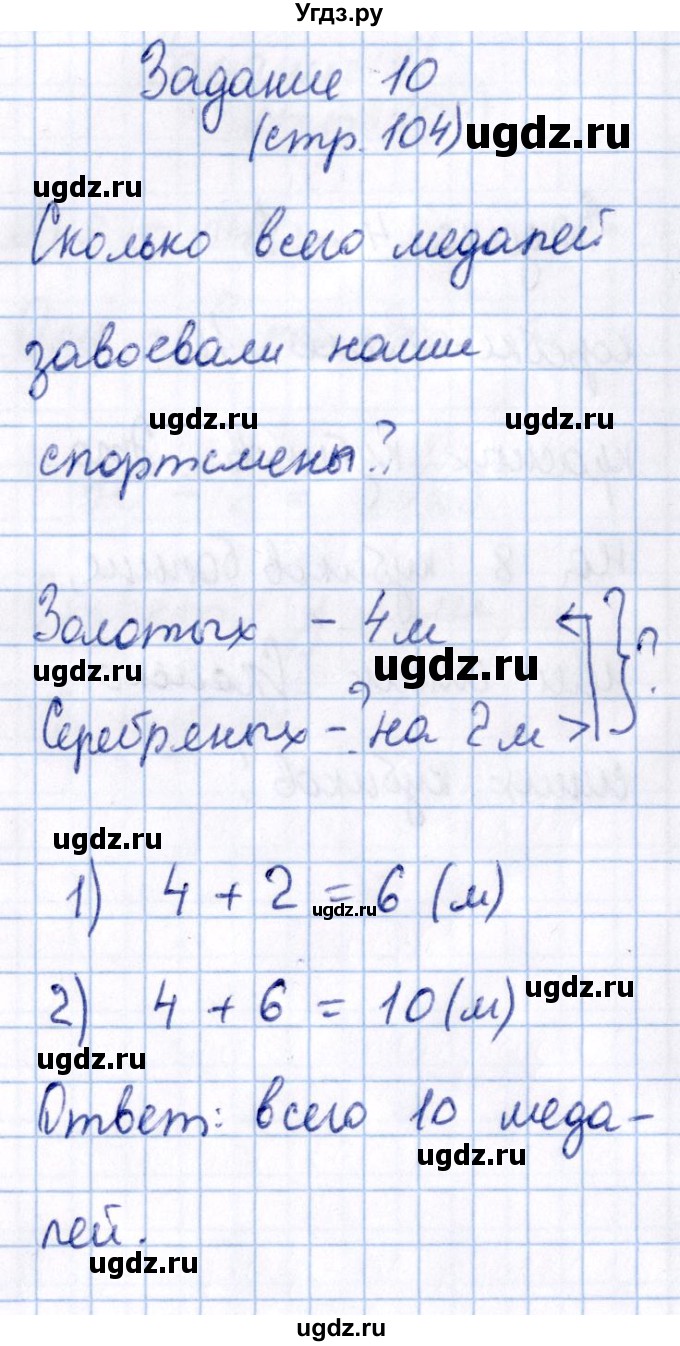 Угдз.ру
Задание 10
(стр. 104) ugdz.ru
ugdz.ru
Сколько всего медалей
завоевали наши
ugdz.ru ugdz.ru
спортсмены?
Золотых - 4 м
ugdz.ru ugdz.ru ?
Серебряных - ? на 2 м >
ugdz.ru
1) 4 + 2 = 6 (м)
ugdz.ru
2) 4 + 6 = 10 (м) ugdz.ru
ugdz.ru
Ответ: всего 10 меда-
ugdz.ru
лей.
ugdz.ru
ugdz.ru